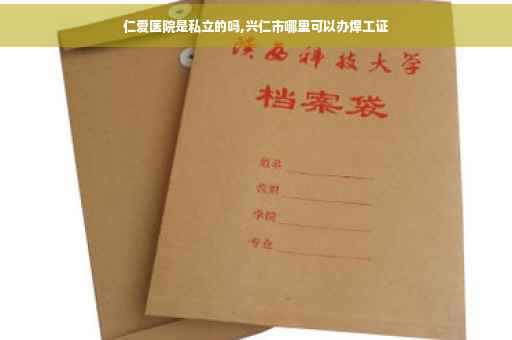 仁爱医院是私立的吗,兴仁市哪里可以办焊工证
陕西科技大学
档案袋
姓名
学院
专业